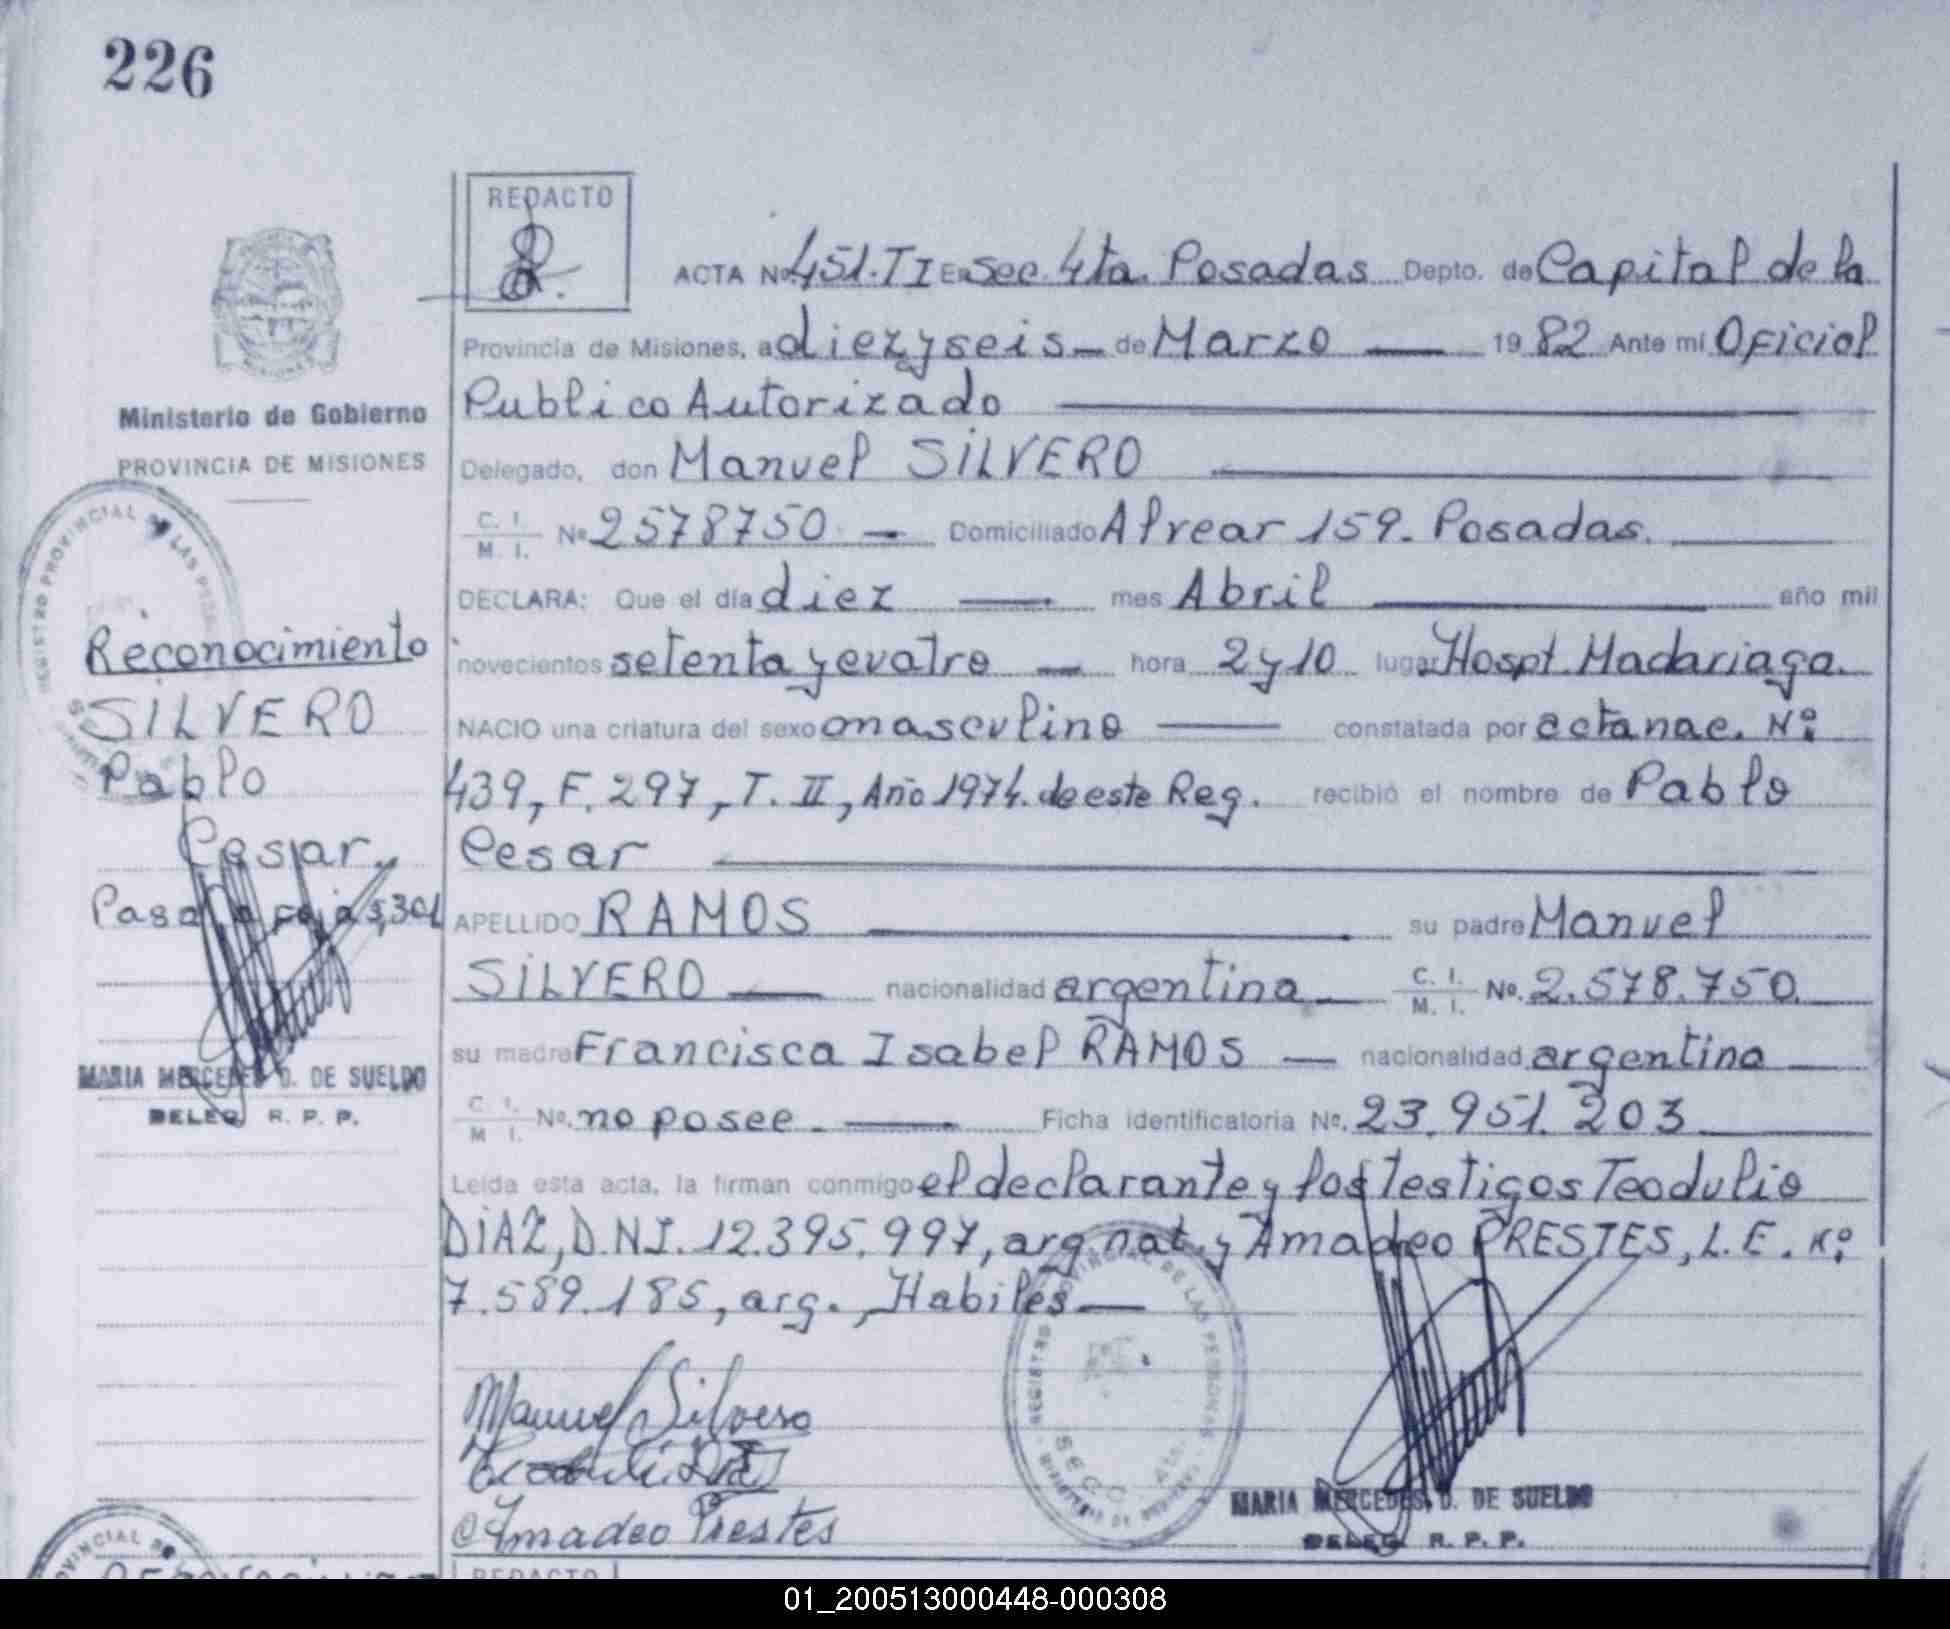 226
REDACTO
ACTA Nº 451.TI En Sec. 4ta. Posadas Depto. de Capital de la
Provincia de Misiones, a diezyseis de Marzo 1982 Ante mi Oficial
Publico Autorizado
Delegado, don Manuel SILVERO
C. I. M. I. Nº 2578750 Domiciliado Alvear 159. Posadas.
DECLARA: Que el día diez mes Abril año mil
novecientos setenta y cuatro hora 2y10 lugar Hospt. Madariaga.
NACIO una criatura del sexo masculino constatada por actanac. Nº
439, F. 297, T. II, Año 1974. de este Reg. recibió el nombre de Pablo
Cesar
APELLIDO RAMOS su padre Manuel
SILVERO nacionalidad argentina C. I. M. I. Nº. 2.578.750.
su madre Francisca Isabel RAMOS nacionalidad argentina
C. I. M I. Nº. no posee. Ficha identificatoria Nº. 23.951.203
Leída esta acta, la firman conmigo el declarante y los testigos Teodulio
DIAZ, D.NI. 12.395.997, arg nat. y Amadeo PRESTES, L.E. Nº
7.589.185, arg., Habiles
Manuel Silvero
Amadeo Prestes
REGISTRO PROVINCIAL DE LAS PERSONAS
MARIA MERCEDES D. DE SUELDO
DELEG. R. P. P.
Ministerio de Gobierno
PROVINCIA DE MISIONES
REGISTRO PROVINCIAL DE LAS
Reconocimiento
SILVERO
Pablo
Cesar
Pasa a fojas, 301
MARIA MERCEDES D. DE SUELDO
DELEG. R. P. P.
REDACTO
01_200513000448-000308